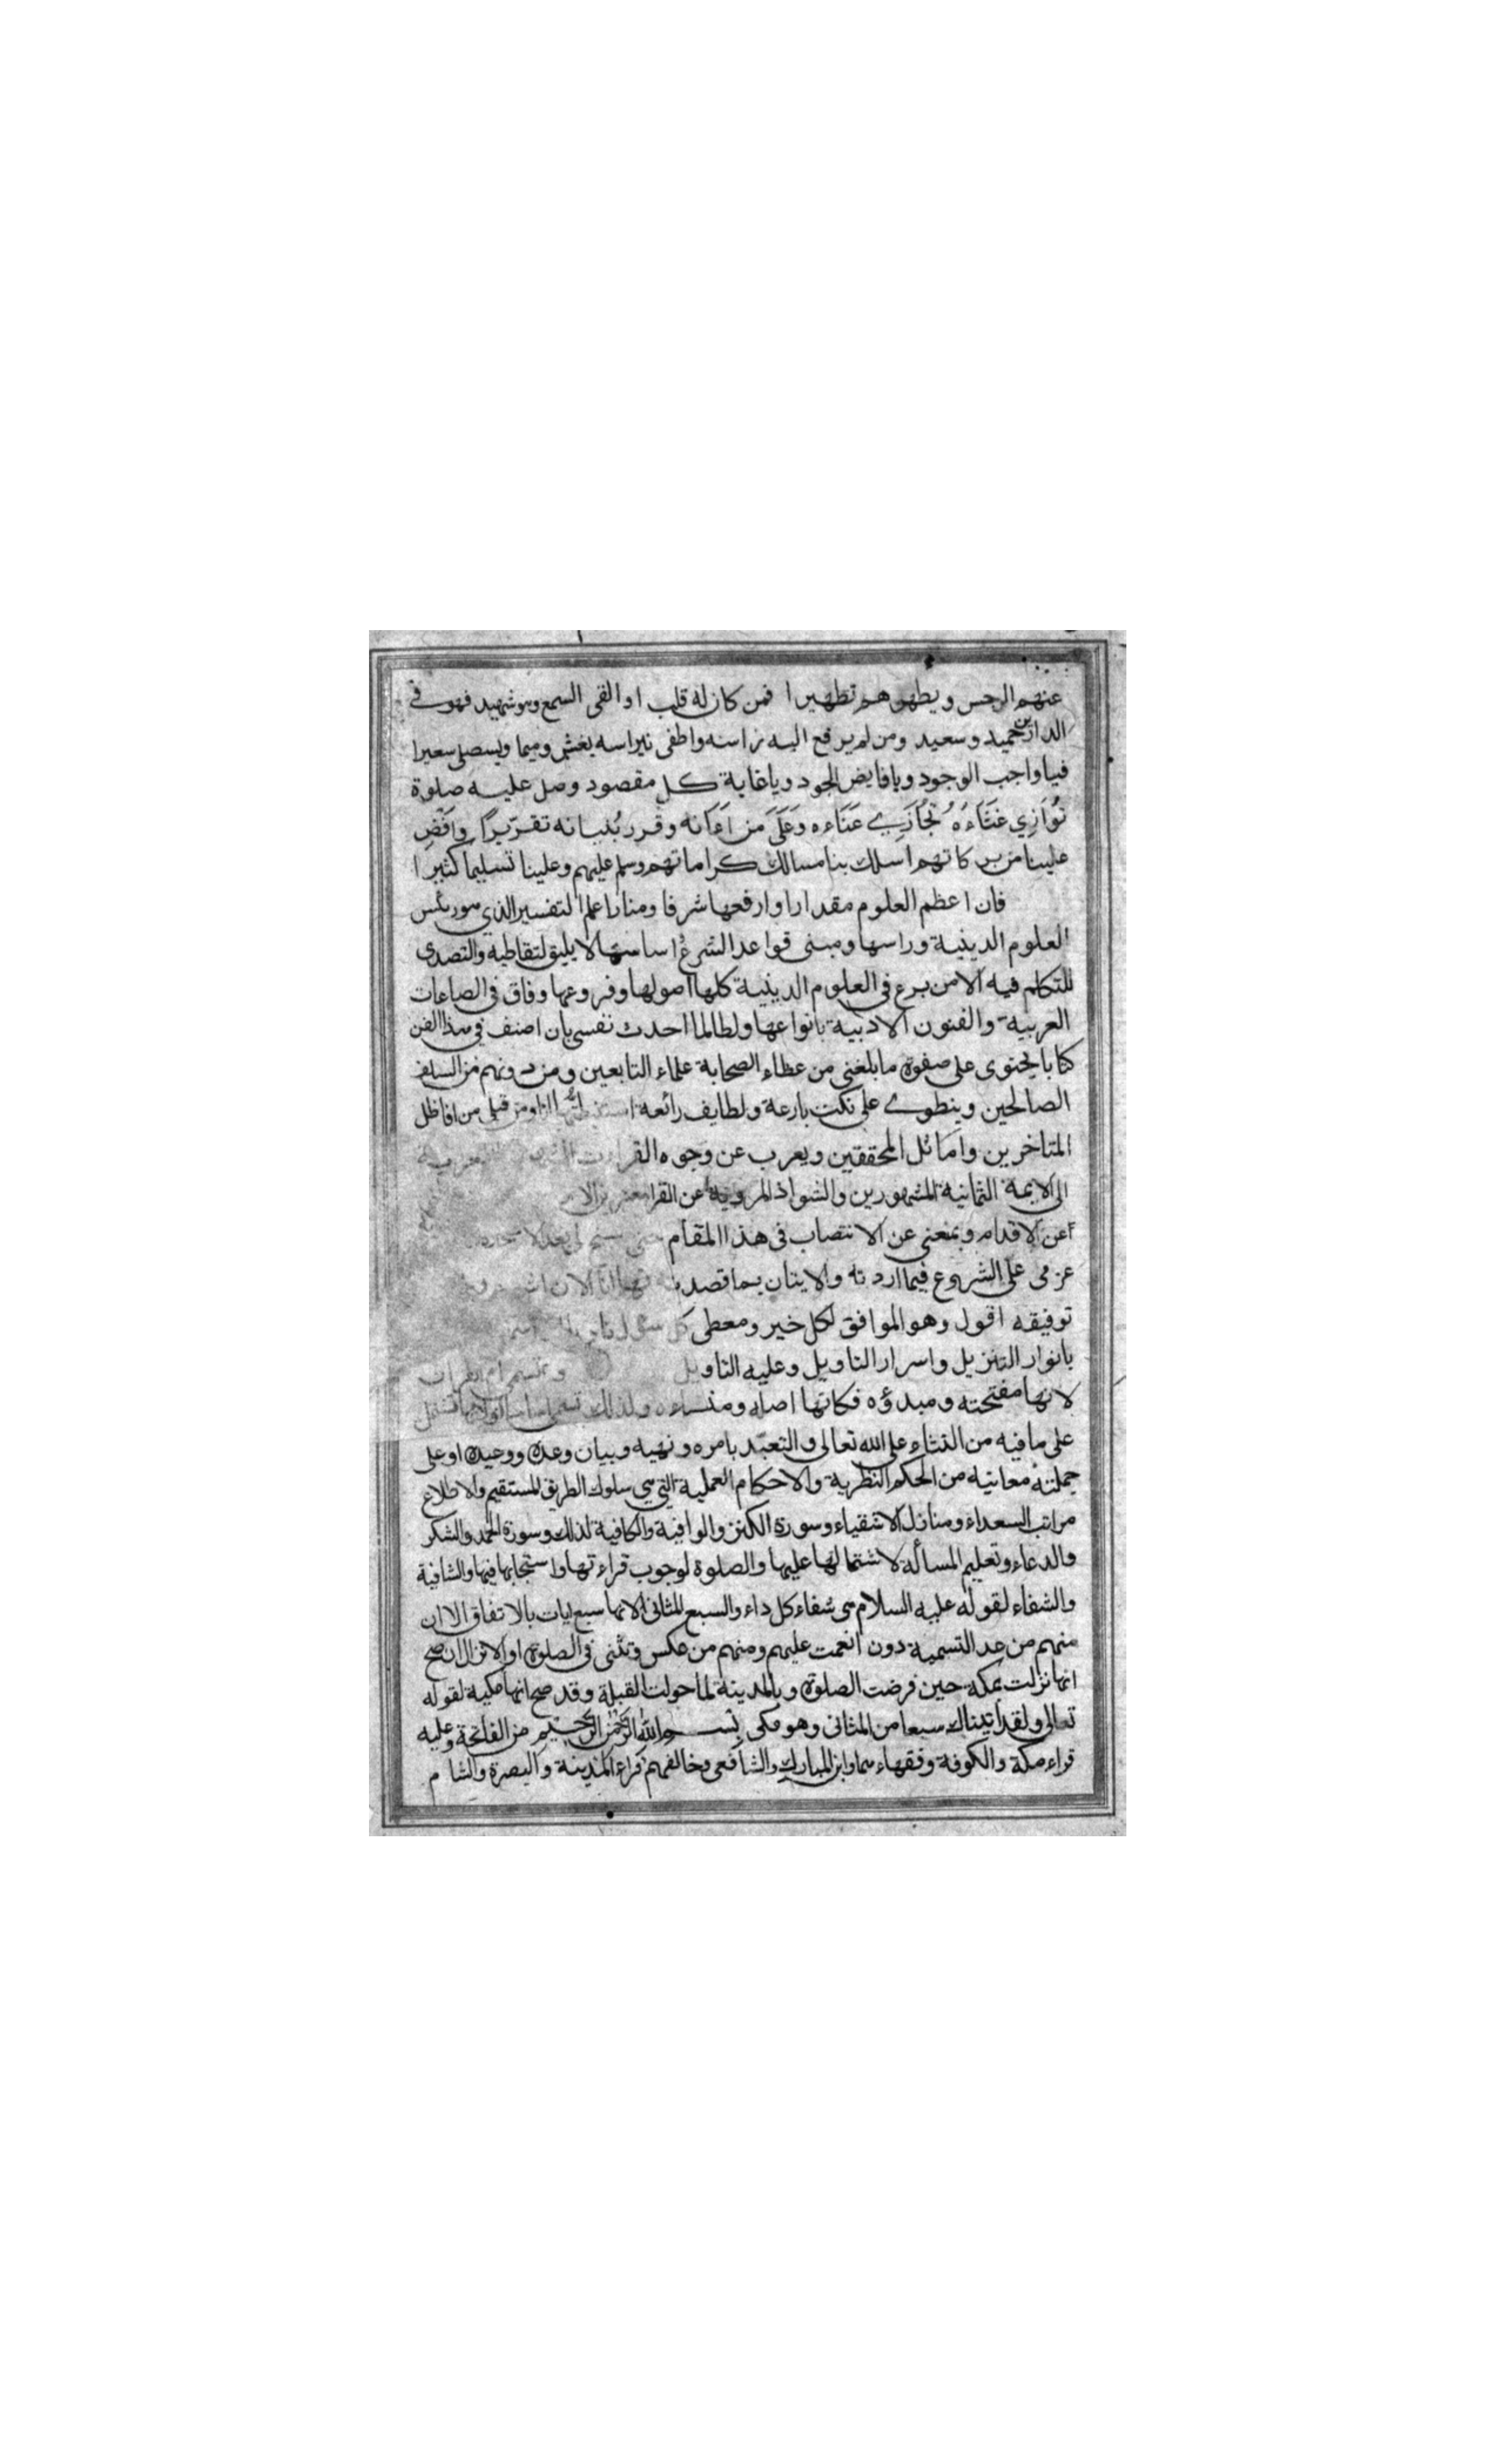 عنهم الرجس ويطهرهم تطهيرا فمن كان له قلب او القى السمع وهو شهيد فهو في
الدارين حميد وسعيد ومن لم يرفع اليه راسه واطفى نبراسه يعش ذميما ويصلى سعيرا
فيا واجب الوجود ويا فايض الجود ويا غاية كل مقصود وصل عليه صلوة
توازي غناءه تجازي عناءه وعلى من اعانه وقرر بنيانه تقريرا وافض
علينا من بركاتهم اسلك بنا مسالك كراماتهم وسلم عليهم وعلينا تسليما كثيرا
فان اعظم العلوم مقدارا وارفعها شرفا ومنارا علم التفسير الذي هو رئس
العلوم الدينية وراسها ومبنى قواعد الشرع اساسها لا يليق لتعاطيه والتصدى
للتكلم فيه الا من برع فى العلوم الدينية كلها اصولها وفروعها وفاق فى الصاعات
العربية والفنون الادبية بانواعها ولطالما احدث نفسى بان اصنف في هذا الفن
كتابا يحتوى على صفوة ما بلغنى من عظاء الصحابة علماء التابعين ومن دونهم من السلف
الصالحين وينطوے على نكت بارعة ولطايف رائعة ومن قبلى من افاظل
المتاخرين واماثل المحققين ويعرب عن وجوه القراءت
الى الايمة الثمانية المشهورين والشواذ المروية عن القرا
عن الاقدام ويمنعنى عن الانتصاب فى هذا المقام حتى لى بعد الاستخارة
عزمى على الشروع فيما اردته والاتيان بما قصد الان
توفيقه اقول وهو الموافق لكل خير ومعطى كل سئول
بانوار التنزيل واسرار التاويل وعليه التاويل وتسمى ام القران
لانها مفتحته ومبدؤه فكانها اصله ومنشاءه ولذلك تسمى اساسا تشتمل
على ما فيه من الثناء على الله تعالى والتعبد بامره ونهيه وبيان وعده ووعيده او على
جملته معانيه من الحكم النظرية والاحكام العملية التي هي سلوك الطريق المستقيم والاطلاع
مراتب السعداء ومنازل الاشقياء وسورة الكنز والوافية والكافية لذلك وسورة الحمد والشكر
والدعاء وتعليم المسألة لاشتمالها عليها والصلوة لوجوب قراءتها او استحبابها فيها والشافية
والشفاء لقوله عليه السلام هى شفاء كل داء والسبع المثانى لانها سبع ايات بالاتفاق الا ان
منهم من عد التسمية دون انعمت عليهم ومنهم من عكس وتثنى فى الصلوة او الانزال ان صح
انها نزلت بمكة حين فرضت الصلوة وبالمدينة لما حولت القبلة وقد صح انها مكية لقوله
تعالى ولقد اتيناك سبعا من المثانى وهو مكى بسم الله الرحمن الرحيم من الفاتحة وعليه
قراء مكة والكوفة وفقهاءهما وابن المبارك والشافعى وخالفهم قراء المدينة والبصرة والشام